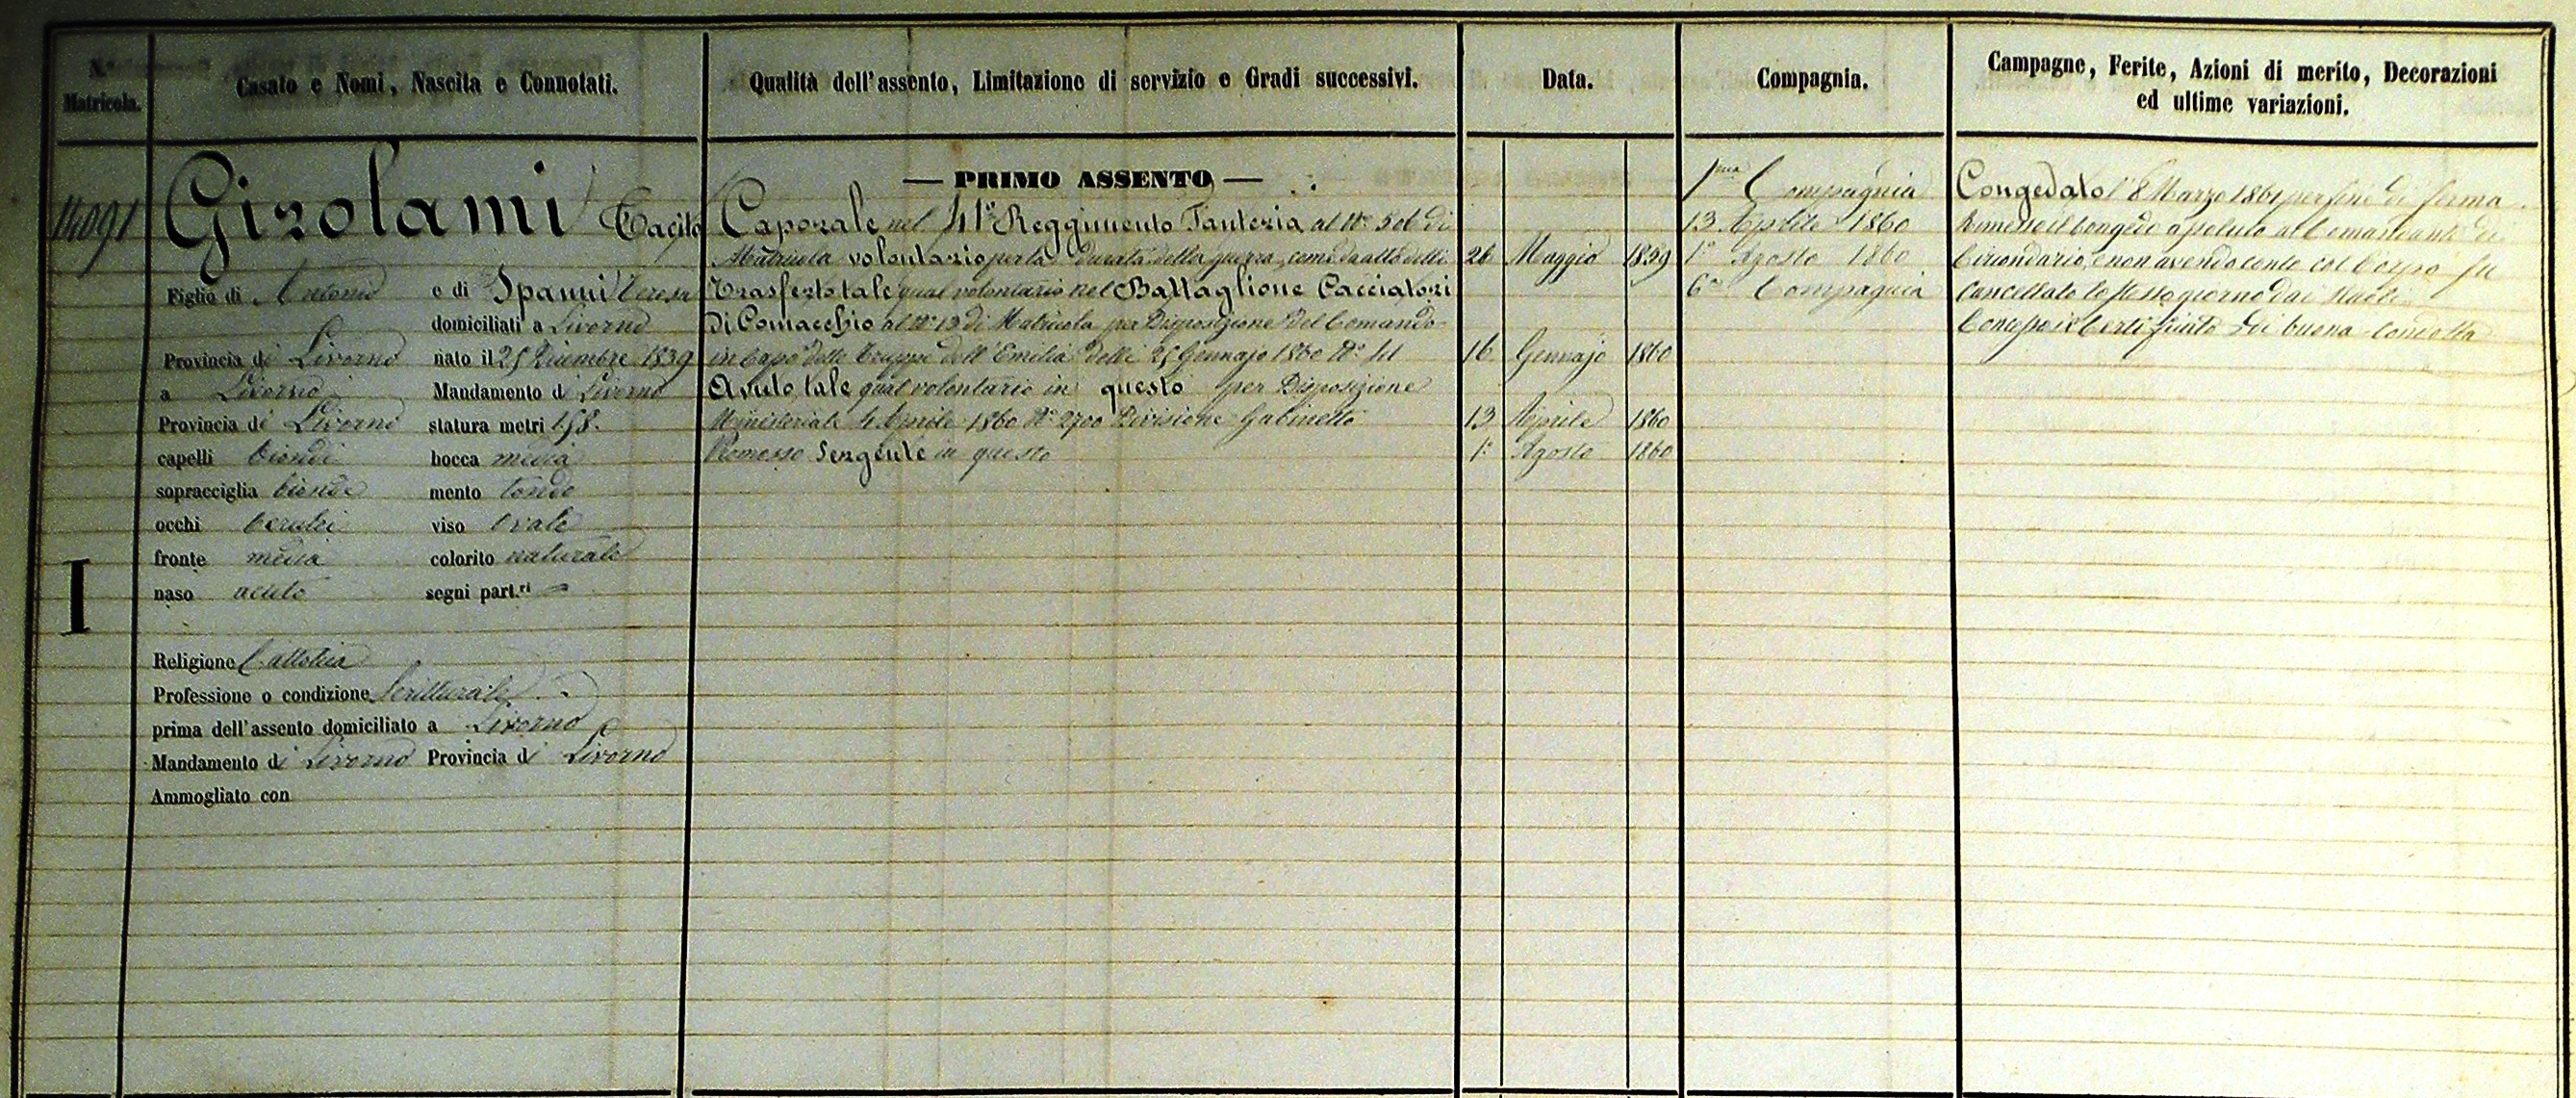 N.° Matricola.
Casato e Nomi, Nascita e Connotati.
Qualità dell'assento, Limitazione di servizio e Gradi successivi.
Data.
Compagnia.
Campagne, Ferite, Azioni di merito, Decorazioni
ed ultime variazioni.
14091
Girolami Tacito
Figlio di Antonio e di Spanni Teresa
domiciliati a Livorno
Provincia di Livorno nato il 25 Dicembre 1839
a Livorno Mandamento di Livorno
Provincia di Livorno statura metri 1,58.
capelli biondi bocca media
sopracciglia bionde mento tondo
occhi cerulei viso ovale
fronte media colorito naturale
naso acuto segni part.ri
I
Religione Cattolica
Professione o condizione Scritturale
prima dell'assento domiciliato a Livorno
Mandamento di Livorno Provincia di Livorno
Ammogliato con
— PRIMO ASSENTO —
Caporale nel 41° Reggimento Fanteria al N° 506 di
Matricola volontario per la durata della guerra, come da atto delli 26 Maggio 1859
Trasferto tale qual volontario nel Battaglione Cacciatori
di Comacchio al N° 13 di Matricola per Disposizione del Comando
in Capo delle Truppe dell'Emilia delli 25 Gennajo 1860 N° 16 Gennajo 1860
Avuto tale qual volontario in questo per Disposizione
Ministeriale 4 Aprile 1860 N° 2700 Divisione Gabinetto 13 Aprile 1860
Promosso Sergente in questo 1° Agosto 1860
1ma Compagnia
13 Aprile 1860
1° Agosto 1860
6a Compagnia
Congedato l'8 Marzo 1861 per fine di ferma
Rimesso il Congedo assoluto al Comandante di
Circondario, e non avendo conto col Corpo fu
Cancellato lo stesso giorno dai Ruoli
Concessogli Certificato di buona condotta